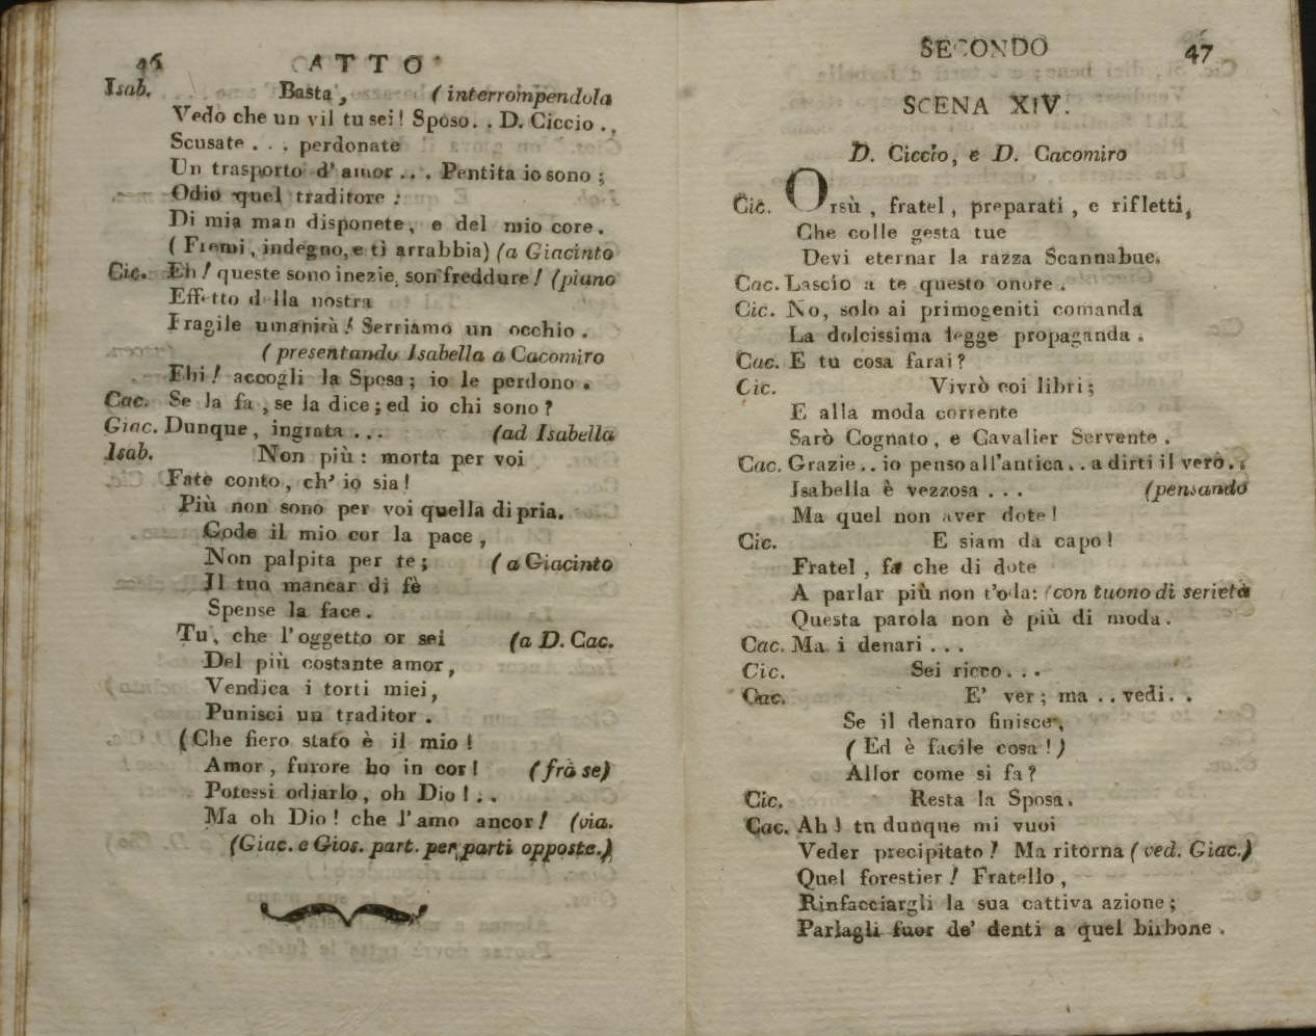 46 ATTO
Isab. Basta, (interrompendola
Vedo che un vil tu sei! Sposo.. D. Ciccio..
Scusate... perdonate
Un trasporto d'amor... Pentita io sono;
Odio quel traditore:
Di mia man disponete, e del mio core.
(Fremi, indegno, e ti arrabbia) (a Giacinto
Cic. Eh! queste sono inezie, son freddure! (piano
Effetto della nostra
Fragile umanità! Serriamo un occhio.
(presentando Isabella a Cacomiro
Ehi! accogli la Sposa; io le perdono.
Cac. Se la fa, se la dice; ed io chi sono?
Giac. Dunque, ingrata... (ad Isabella
Isab. Non più: morta per voi
Fate conto, ch'io sia!
Più non sono per voi quella di pria.
Gode il mio cor la pace,
Non palpita per te; (a Giacinto
Il tuo mancar di fè
Spense la face.
Tu, che l'oggetto or sei (a D. Cac.
Del più costante amor,
Vendica i torti miei,
Punisci un traditor.
(Che fiero stato è il mio!
Amor, furore ho in cor! (frà se)
Potessi odiarlo, oh Dio!..
Ma oh Dio! che l'amo ancor! (via.
(Giac. e Gios. part. per parti opposte.)
SECONDO 47
SCENA XIV.
D. Ciccio, e D. Cacomiro
Cic. Orsù, fratel, preparati, e rifletti,
Che colle gesta tue
Devi eternar la razza Scannabue.
Cac. Lascio a te questo onore.
Cic. No, solo ai primogeniti comanda
La dolcissima legge propaganda.
Cac. E tu cosa farai?
Cic. Vivrò coi libri;
E alla moda corrente
Sarò Cognato, e Cavalier Servente.
Cac. Grazie.. io penso all'antica.. a dirti il vero..
Isabella è vezzosa... (pensando
Ma quel non aver dote!
Cic. E siam da capo!
Fratel, fa che di dote
A parlar più non t'oda: (con tuono di serietà
Questa parola non è più di moda.
Cac. Ma i denari...
Cic. Sei ricco...
Cac. E' ver; ma.. vedi..
Se il denaro finisce,
(Ed è facile cosa!)
Allor come si fa?
Cic. Resta la Sposa.
Cac. Ah! tu dunque mi vuoi
Veder precipitato! Ma ritorna (ved. Giac.)
Quel forestier! Fratello,
Rinfacciargli la sua cattiva azione;
Parlagli fuor de' denti a quel birbone.